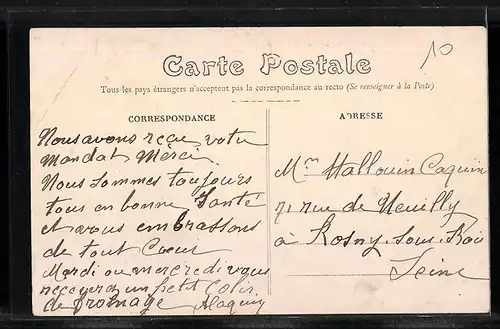 10
Carte Postale
Tous les pays étrangers n'acceptent pas la correspondance au recto (Se renseigner à la Poste)
CORRESPONDANCE
Nous avons reçu votre
mandat Merci
Nous sommes toujours
tous en bonne Santé
et vous embrassons
de tout Coeur
Mardi ou mercredi vous
recevrez un petit Colis
de fromage
ADRESSE
Mr Hallouin Caquin
71 rue de Neuilly
à Rosny sous Bois
Seine